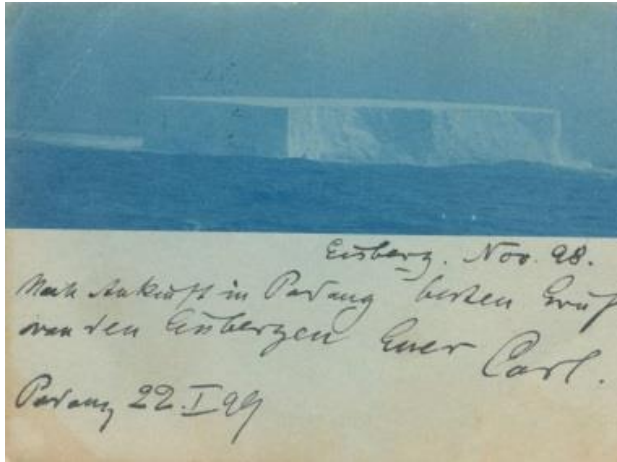 Eisberg. Nov. 98.
Nach Ankunft in Padang besten Gruß
von den Eisbergen Euer Carl.
Padang 22.I 99